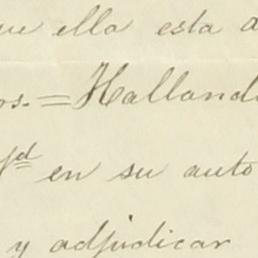 ue ella esta a
os.=Halland
Vd en su auto
y adjudicar